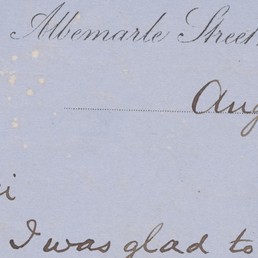 Albemarle Street
Aug
I was glad to